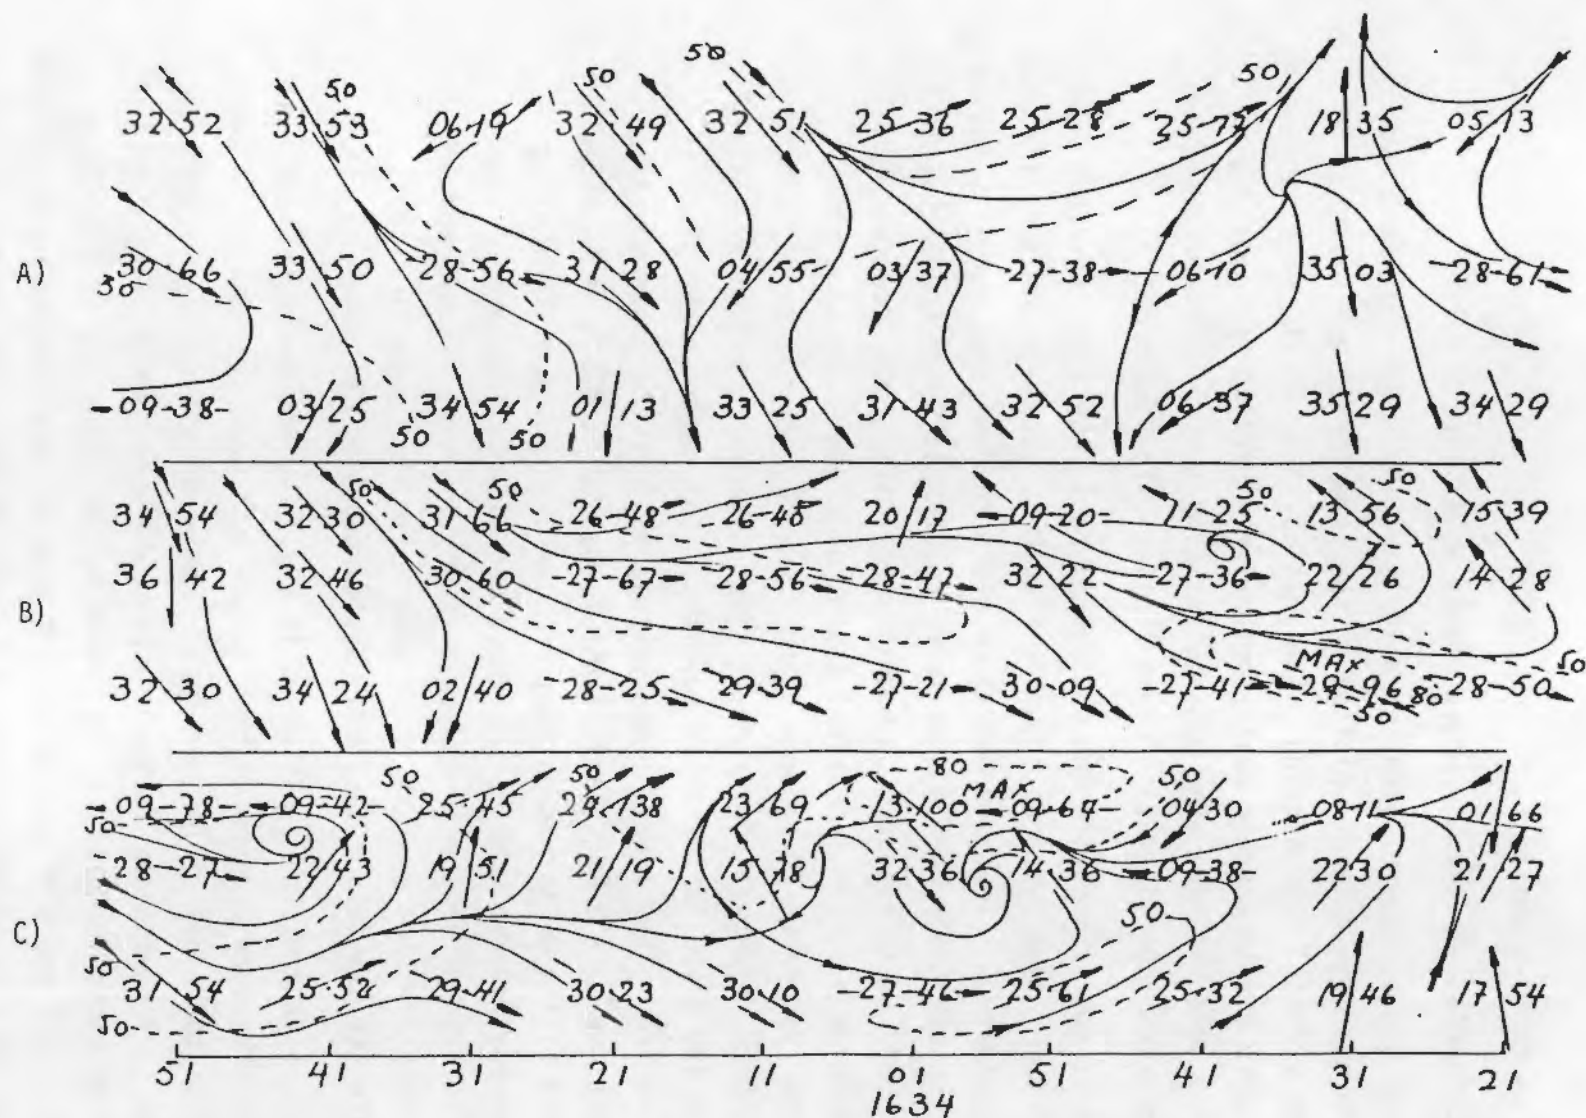 50 50 50 50
32-52 33-53 06-19 32 49 32 51 25-36 25-28 18 35 05
A) 30-66 33 50 28-56 31 28 04 55 03 37 27-38 06-10 35 03 28-61
50
09-38 03 25 34 54 01 13 33 25 31-43 32 52 06-37 35 29 34 29
50 50
50 50 50 50
34 54 32-30 31 66 26-48 26-48 20 17 09-20 11-25 13 56 15 39
36 42 32 46 30-60 27-67 28-56 28-47 32 22 27-36 22 26 14 28
B)
MAX 50
32 30 34 24 02 40 28-25 29-39 27-21 30-09 27-41 29-96 80 28-50
50
50 50 80 MAX 50
09-78 09-42 25-45 24-138 23 69 13-100 09-64 04 30 08-11 01 66
50
28-27 22 43 19 51 21 19 15 78 32 36 14 36 09-38 22 30 21 27
50
C)
50
31 54 25-52 29-41 30-23 30-10 27-46 25-61 25-32 19 46 17 54
50
51 41 31 21 11 01 51 41 31 21
1634